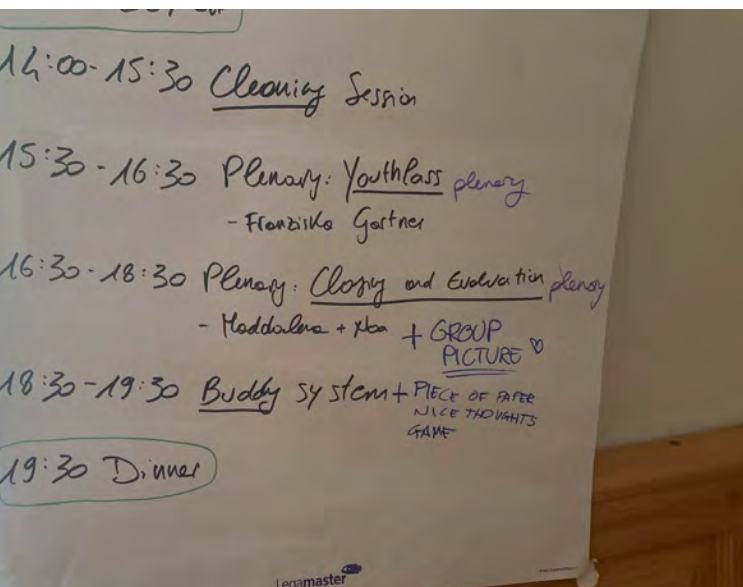 14:00-15:30 Cleaning Session
15:30-16:30 Plenary: YouthPass plenary
- Franziska Gartner
16:30-18:30 Plenary: Closing and Evaluation plenary
- Maddalena + + GROUP
PICTURE ♡
18:30-19:30 Buddy system + PIECE OF PAPER
NICE THOUGHTS
GAME
19:30 Dinner
Legamaster